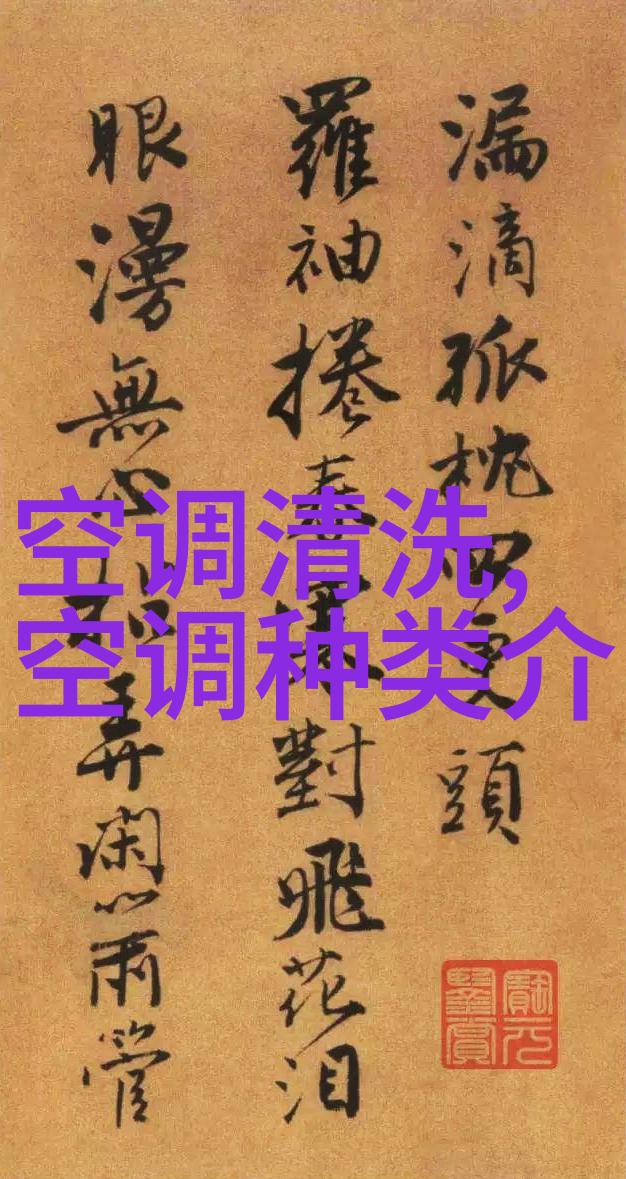 空调清洗,
空调种类介
漏滴孤枕四更頭
羅袖捲春對飛花泪
眼漫無心弄閑管